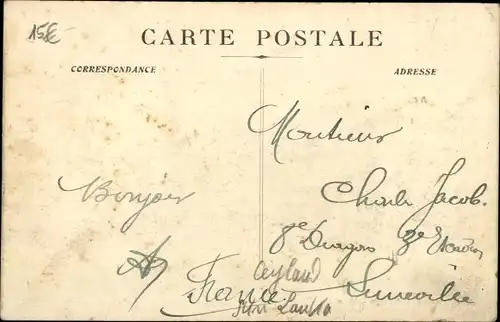 15€
CARTE POSTALE
CORRESPONDANCE
ADRESSE
Monsieur
Bonjour
Charles Jacob.
8e Dragons 3e Escadron
Luneville
France
Ceyland
Sri Lanka